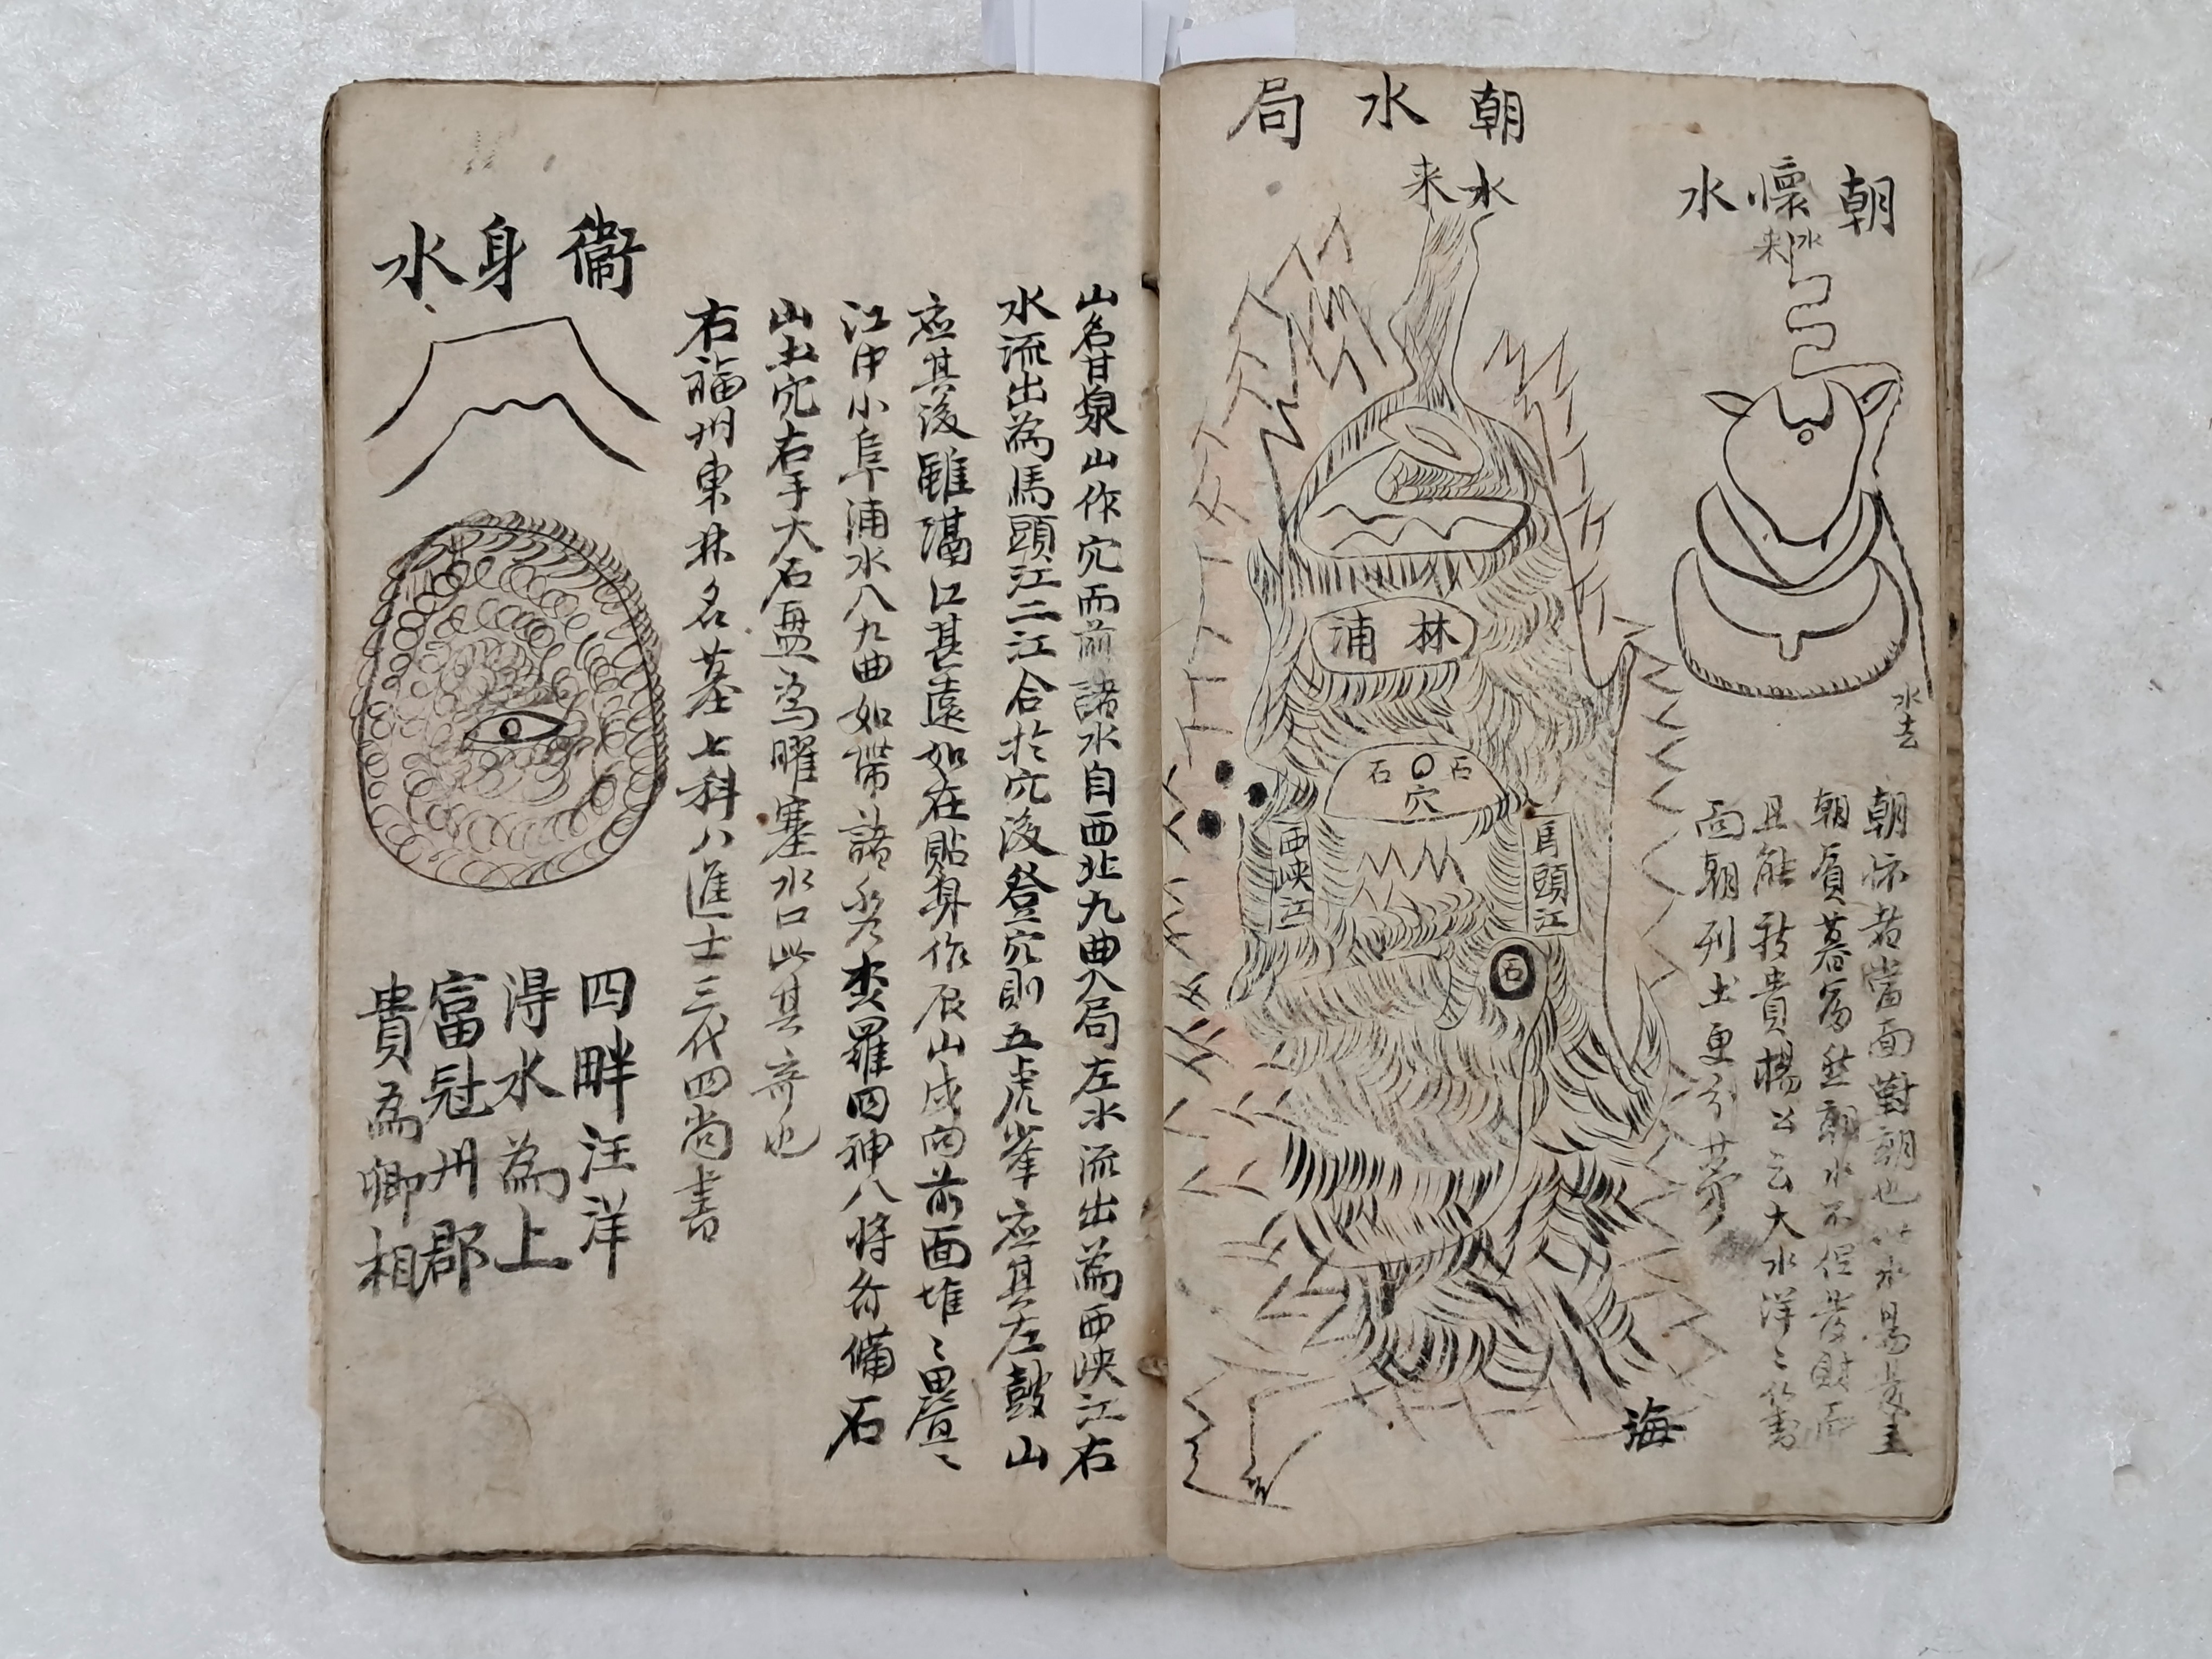 朝懷水
水来
水去
朝怀者當面對朝也以水易發主
朝貧暮富然朝水不但發財而
且能致貴楊公云大水洋〻
面朝列土更分茅
朝水局
水来
林浦
石 穴 石
西峡江
馬頭江
石
海
山名甘泉山作穴而前諸水自西北九曲入局左水流出為西峡江右
水流出為馬頭江二江合扵穴後登穴則五虎峯應其左鼓山
應其後雖濶江甚遠如在貼身作辰山戌向前面堆〻疊〻
江中小阜浦水八九曲如帶諸峯森羅四神八將各備石
山土穴右手大石盤為曜塞水口此其奇也
右福州東林名墓七科八進士三代四尚書
衞身水
四畔汪洋
得水為上
富冠州郡
貴為卿相